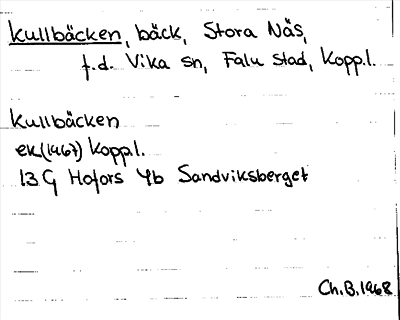 Kullbäcken, bäck, Stora Näs,
f.d. Vika sn, Falu stad, Kopp.l.
Kullbäcken
ek(1967) Kopp.l.
13 G Hofors 4b Sandviksberget
Ch.B.1968